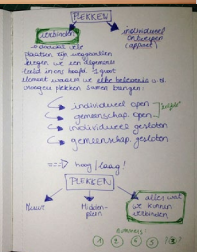 PLEKKEN
verbinden
individueel
ontwerpen
(apart)
→ doordat alle
plaatsen zijn weggevallen
krijgen we een algemeen
beeld in ons hoofd. 1 groot
element waarin we elke belevenis a.d.
vroegere plekken samen hangen:
individueel open
gemeenschap. open
individueel gesloten
gemeenschap gesloten
==> hoog/laag!
PLEKKEN
Muur
Midden-
plein
alles wat
we kunnen
verbinden
nummers:
1 2 6 5